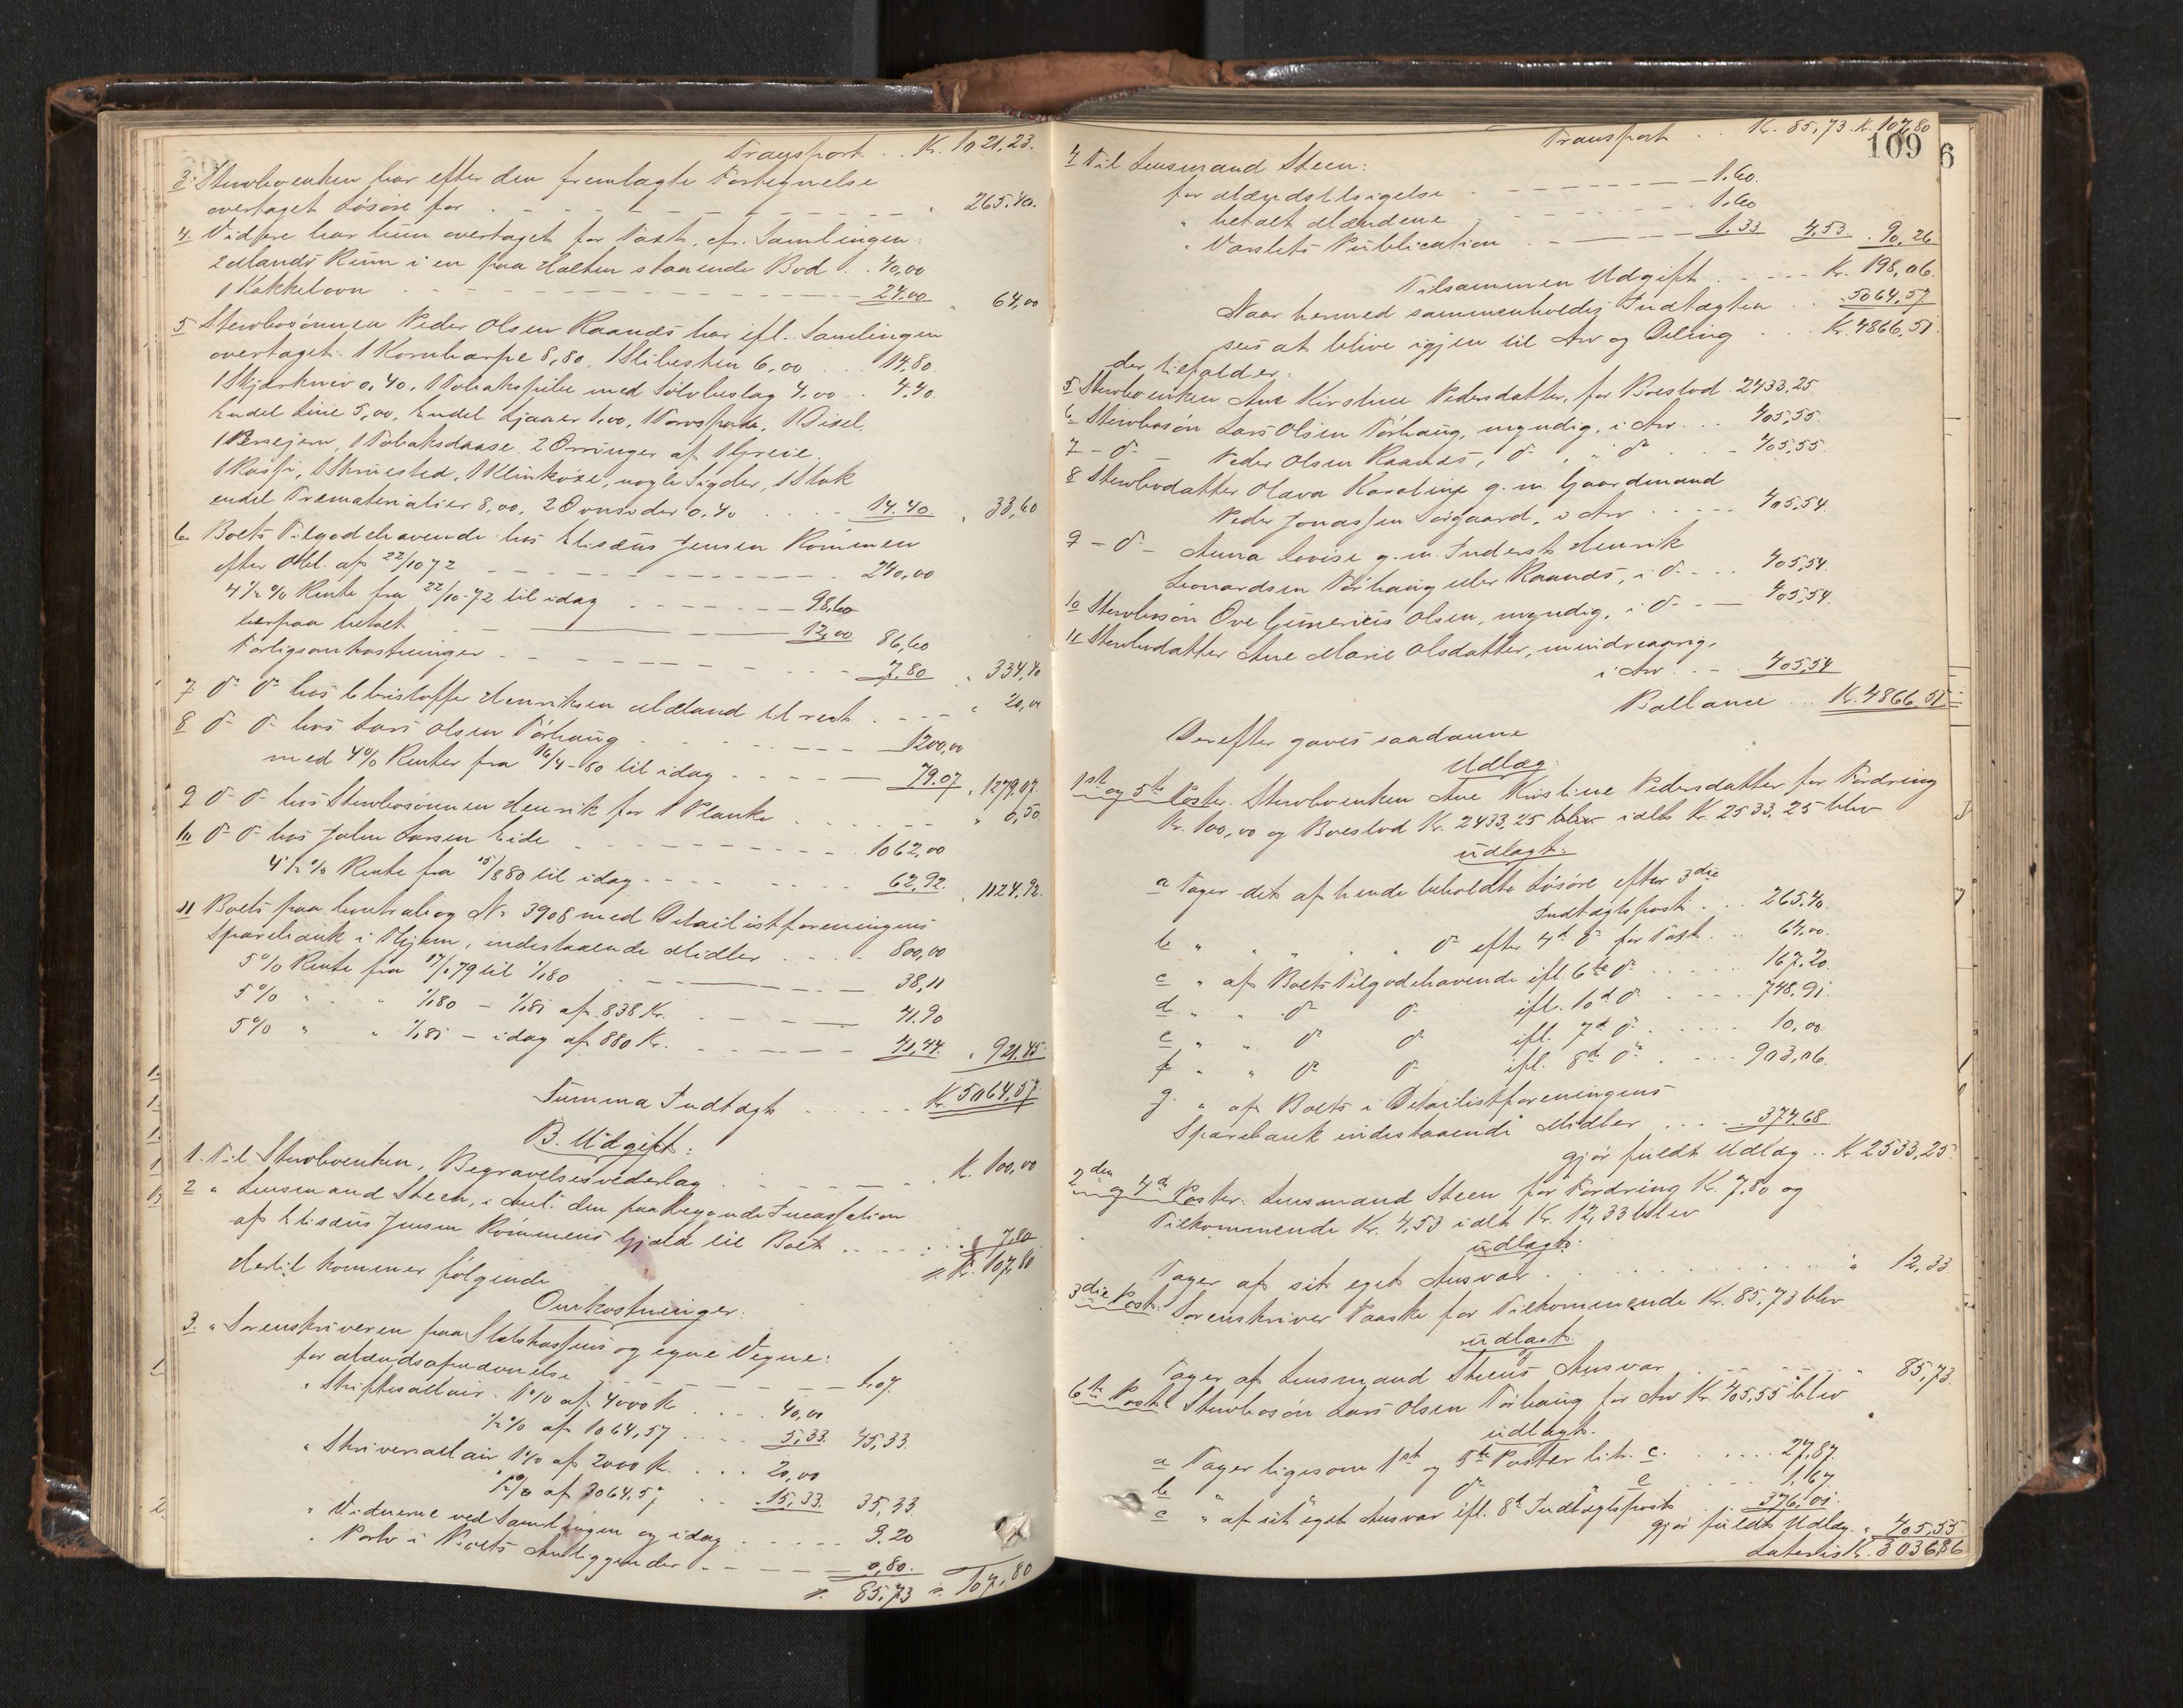 Transport . . Kr. 1021,23.
3. Stervboenken har efter den fremlagte Fortegnelse
overtaget Løsøre for . . . 265.40.
4. Videre har hun overtaget for Taxt, cfr. Samlingen:
2 Mands Rum i en paa Halten staaende Bod . . 40,00
1 Kakkelovn 24.00 " 64,00
5 Stervbosønnen Peder Olsen Raanes har ifl. Samlingen
overtaget: 1 Kornharpe 8,80, 1 Slibesten 6,00 . . . 14,80.
1 Skjærkniv 0,40, 1 Tobakspibe med Sølvbeslag 4,00 . . 4.40.
Endel Line 5,00, Endel Ljaaer 1.00, 1 Torvspade, 1 Bisel,
1 Persejern, 1 Tobaksdaase, 2 Ørringer af 1 Greie,
1 Skruested, 1 Klinkøxe, nogle Sigder, 1 Stok
endel Træmaterialier 8,00, 2 0,40 . . . 14.40 " 33,60
6. Boets Tilgodehavende hos Elisæus Jensen Rømmen
efter Obl. af 22/10 72 . . . 240,00
4½ % Rente fra 22/10-72 til idag . . . 98,60
herpaa betalt 12,00 86,60
Forligsomkostninger . . . 7,80 " 334,40
7. do do hos Christoffer Henriksen Mæland til rest . . . " 20,00
8 do do hos Lars Olsen Tørhaug . . . 1200,00
med 4% Renter fra 16/4-80 til idag . . . 79.07 " 1279,07.
9 do do hos Stervbosønnen Henrik for 1 Planke . . . " 6,50.
10 do do hos John Larsen Eide . . . 1062,00
4½ % Rente fra 15/8 80 til idag . . . 62,92. " 1124,92.
11 Boets paa Contrabog No 3908 med Detailistforeningens
Sparebank i Thjem, indestaaende Midler . . . 800,00
5% Rente fra 17/1 79 til 1/1 80 . . . 38,11
5% " " 1/1 80 – 1/1 81 af 838 Kr. . . . 41.90
5% " " 1/1 81 – idag af 880 Kr. . . . 41,44. " 921.45
Summa Indtægt . . . Kr. 5064,57.
B. Udgift:
1. Til Stervboenken, Begravelsesvederlag . . . Kr. 100,00
2 " Lensmand Steen, i Anl. den paabegyndte Incassation
af Elisæus Jensen Rømmens Gjæld til Boet . . . 7,80
Kr. 107,80
Hertil kommer følgende
Omkostninger.
3. " Sorenskriveren paa Statskassens og egne Vegne:
for Mændsopnævnelse . . . 1.07.
" Skiftesallair. 1% af 4000 Kr. . . . 40,00
½% af 1064,57 . . . 5,33. 45,33.
" Skriversallair 1% af 2000 Kr. . . . 20,00
½% af 3064.57 . . 15,33. 35,33.
" Vidnerne ved Samlingen og idag . . . 3.20
" Porto i Boets Anliggender . . . 0,80.
85,73 107,80
109
6
Transport . . Kr. 85,73. Kr. 107,80
4 Til Lensmand Steen:
for Mændstilsigelse . . . 1.60.
" betalt Mændene . . . 1.60
" Varslets Publication . . . 1.33 4,53. 90,26
Tilsammen Udgift . . . Kr. 198,06.
Naar hermed sammenholdes Indtægten . . 5064,57
sees at blive igjen til Arv og Deling . . . Kr. 4866,51.
der tilfalder:
5 Stervboenken Ane Kirstine Pedersdatter, for Boeslod. 2433,25
6 Stervbosøn Lars Olsen Tørhaug, myndig, i Arv . . . 405,55.
7 – do – Peder Olsen Raanes, do, i do . . . 405,55.
8 Stervbodatter Olava Karoline g. m. Gaardmand
Peder Jonassen Sørgaard, i Arv . . . 405,54.
9 – do – Anna Lovise g. m. Inderst Henrik
Leonardsen Tørhaug eller Raanes, i do . . . 405,54.
10 Stervbosøn Ove Gunerius Olsen, myndig, i do . . . 405,54.
11 Stervbodatter Ane Marie Olsdatter, mindreaarig,
i Arv . . . 405,54
Ballance . . . Kr. 4866,51.
Derefter gaves saadanne
Udlæg:
1ste og 5te Poster. Stervboenken Ane Kirstine Pedersdatter for Fordring
Kr. 100,00 og Boeslod Kr. 2433,25 blev ialt Kr. 2533,25 blev
udlagt:
a Tager det af hende beholdte Løsøre efter 3die
Indtægtspost . . . 265.40.
b " " " " do efter 4de do for Taxt . . 64,00.
c " af Boets Tilgodehavende ifl. 6te do . . . 167.20.
d " " do do ifl. 10de do . . . 748,91.
e " " do do ifl. 7de do . . . 10,00.
f " " do do ifl. 8de do . . . 903,06.
g. " af Boets i Detailistforeningens
Sparebank indestaaende Midler . . . 374,68
gjør fuldt Udlæg . . Kr. 2533,25.
2den og 4de Poster. Lensmand Steen for Fordring Kr. 7,80 og
Tilkommende Kr. 4,53 ialt Kr. 12,33 blev
udlagt:
Tager af sit eget Ansvar . . . " 12,33
3die Post: Sorenskriver Paaske for Tilkommende Kr. 85,73 blev
udlagt:
Tager af Lensmand Steens Ansvar . . . " 85,73.
6te Post: Stervbosøn Lars Olsen Tørhaug for Arv Kr. 405,55 blev
udlagt:
a Tager ligesom 1ste og 5te Poster litr. c. . . . 27,87.
b " do " e . . . 1,67.
c " af sit eget Ansvar ifl. 8de Indtægtspost . . 376,01.
gjør fuldt Udlæg. " 405,55.
Lateris Kr. 3036,86